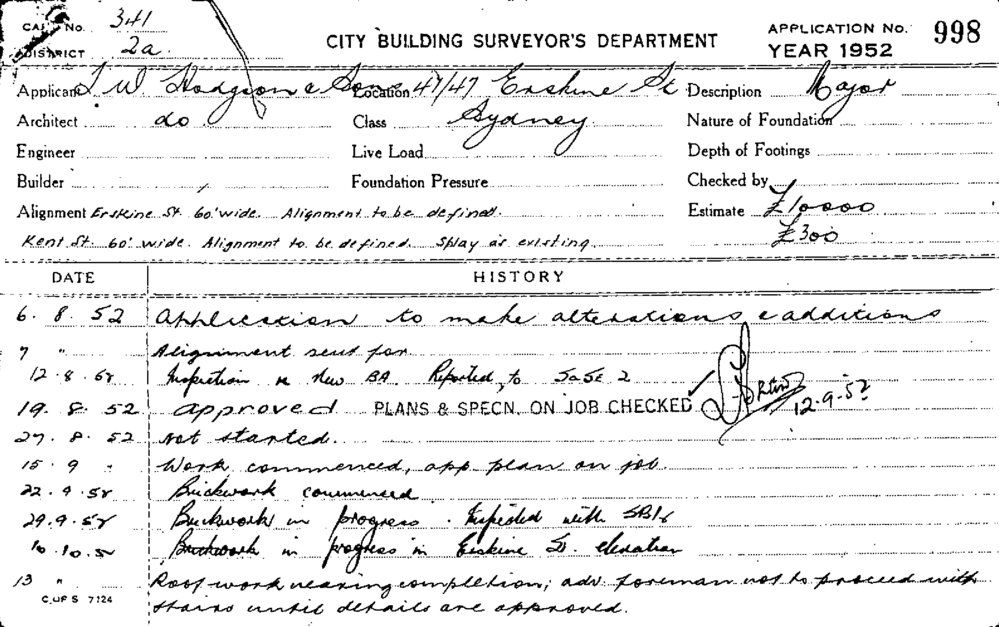 CARD No. 341
DISTRICT 2a
CITY BUILDING SURVEYOR'S DEPARTMENT
APPLICATION No. 998
YEAR 1952
Applicant T W Hodgson & Sons Location 47/47 Erskine St Description Major
Architect do Class Sydney Nature of Foundation
Engineer Live Load Depth of Footings
Builder Foundation Pressure Checked by
Alignment Erskine St. 60' wide. Alignment to be defined. Estimate £10000
Kent St. 60' wide. Alignment to be defined. Splay as existing. £300
DATE HISTORY
6. 8. 52 Application to make alterations & additions
7 " Alignment sent for
12.8.52 Inspection re New BA Reported to
19. 8. 52 approved PLANS & SPECN. ON JOB CHECKED ✓ 12.9.52
27. 8. 52 Not started.
15. 9 " Work commenced, app. plan on job.
22.9.52 Brickwork commenced
29.9.52 Brickwork in progress. Inspected with
10.10.52 Brickwork in progress in Erskine St. elevation
13 " Roof work nearing completion; adv. foreman not to proceed with
C OF S 7124 stairs until details are approved.